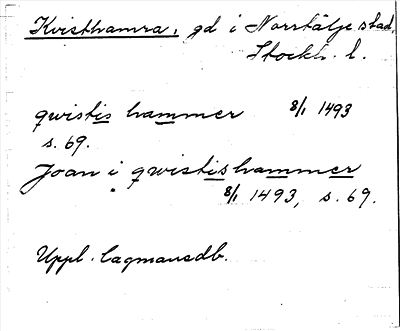 Kvisthamra, gd i Norrtälje stad,
Stockh. l.
qwistis hammer 8/1 1493
s. 69.
Joan i qwistishammer
8/1 1493, s. 69.
Uppl. lagmansdb.